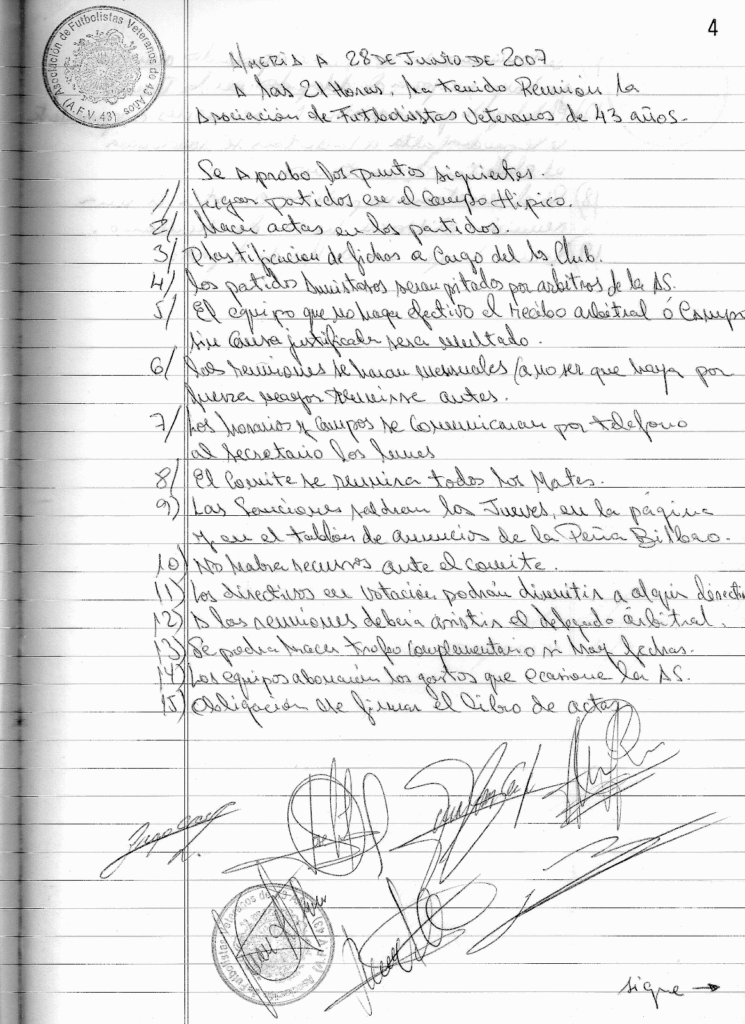 4
Asociación de Futbolistas Veteranos de 43 Años
(A.F.V. 43)
Almeria A 28 DE Junio DE 2007
A las 21 Horas, ha tenido Reunión la
Asociación de Futbolistas Veteranos de 43 años.
Se aprobo los puntos siguientes.
1/ Jugar partidos en el Campo Hipico.
2/ Hacer actas en los partidos.
3/ Plastificacion de fichas a cargo del Club.
4/ Los partidos amistosos seran pitados por arbitros de la AS.
5/ El equipo que no haga efectivo el recibo arbitral ó Campo
sin causa justificada sera multado.
6/ Las reuniones se haran mensuales (a no ser que haya por
fuerza mayor reunirse antes.
7/ Los horarios y campos se comunicaran por telefono
al secretario los lunes
8/ El Comite se reunira todos los Mates.
9) Las Sanciones saldran los Jueves, en la página
y en el tablón de anuncios de la Peña Bilbao.
10) No habra recursos ante el comite.
11) Los directivos en votación podrán dimitir a algún directi
12) A las reuniones debera asistir el delegado arbitral.
13) Se podra hacer trofeo complementario si hay fechas.
14) Los equipos abonarán los gastos que ocasione la AS.
15) Obligación de firmar el libro de actas
sigue →